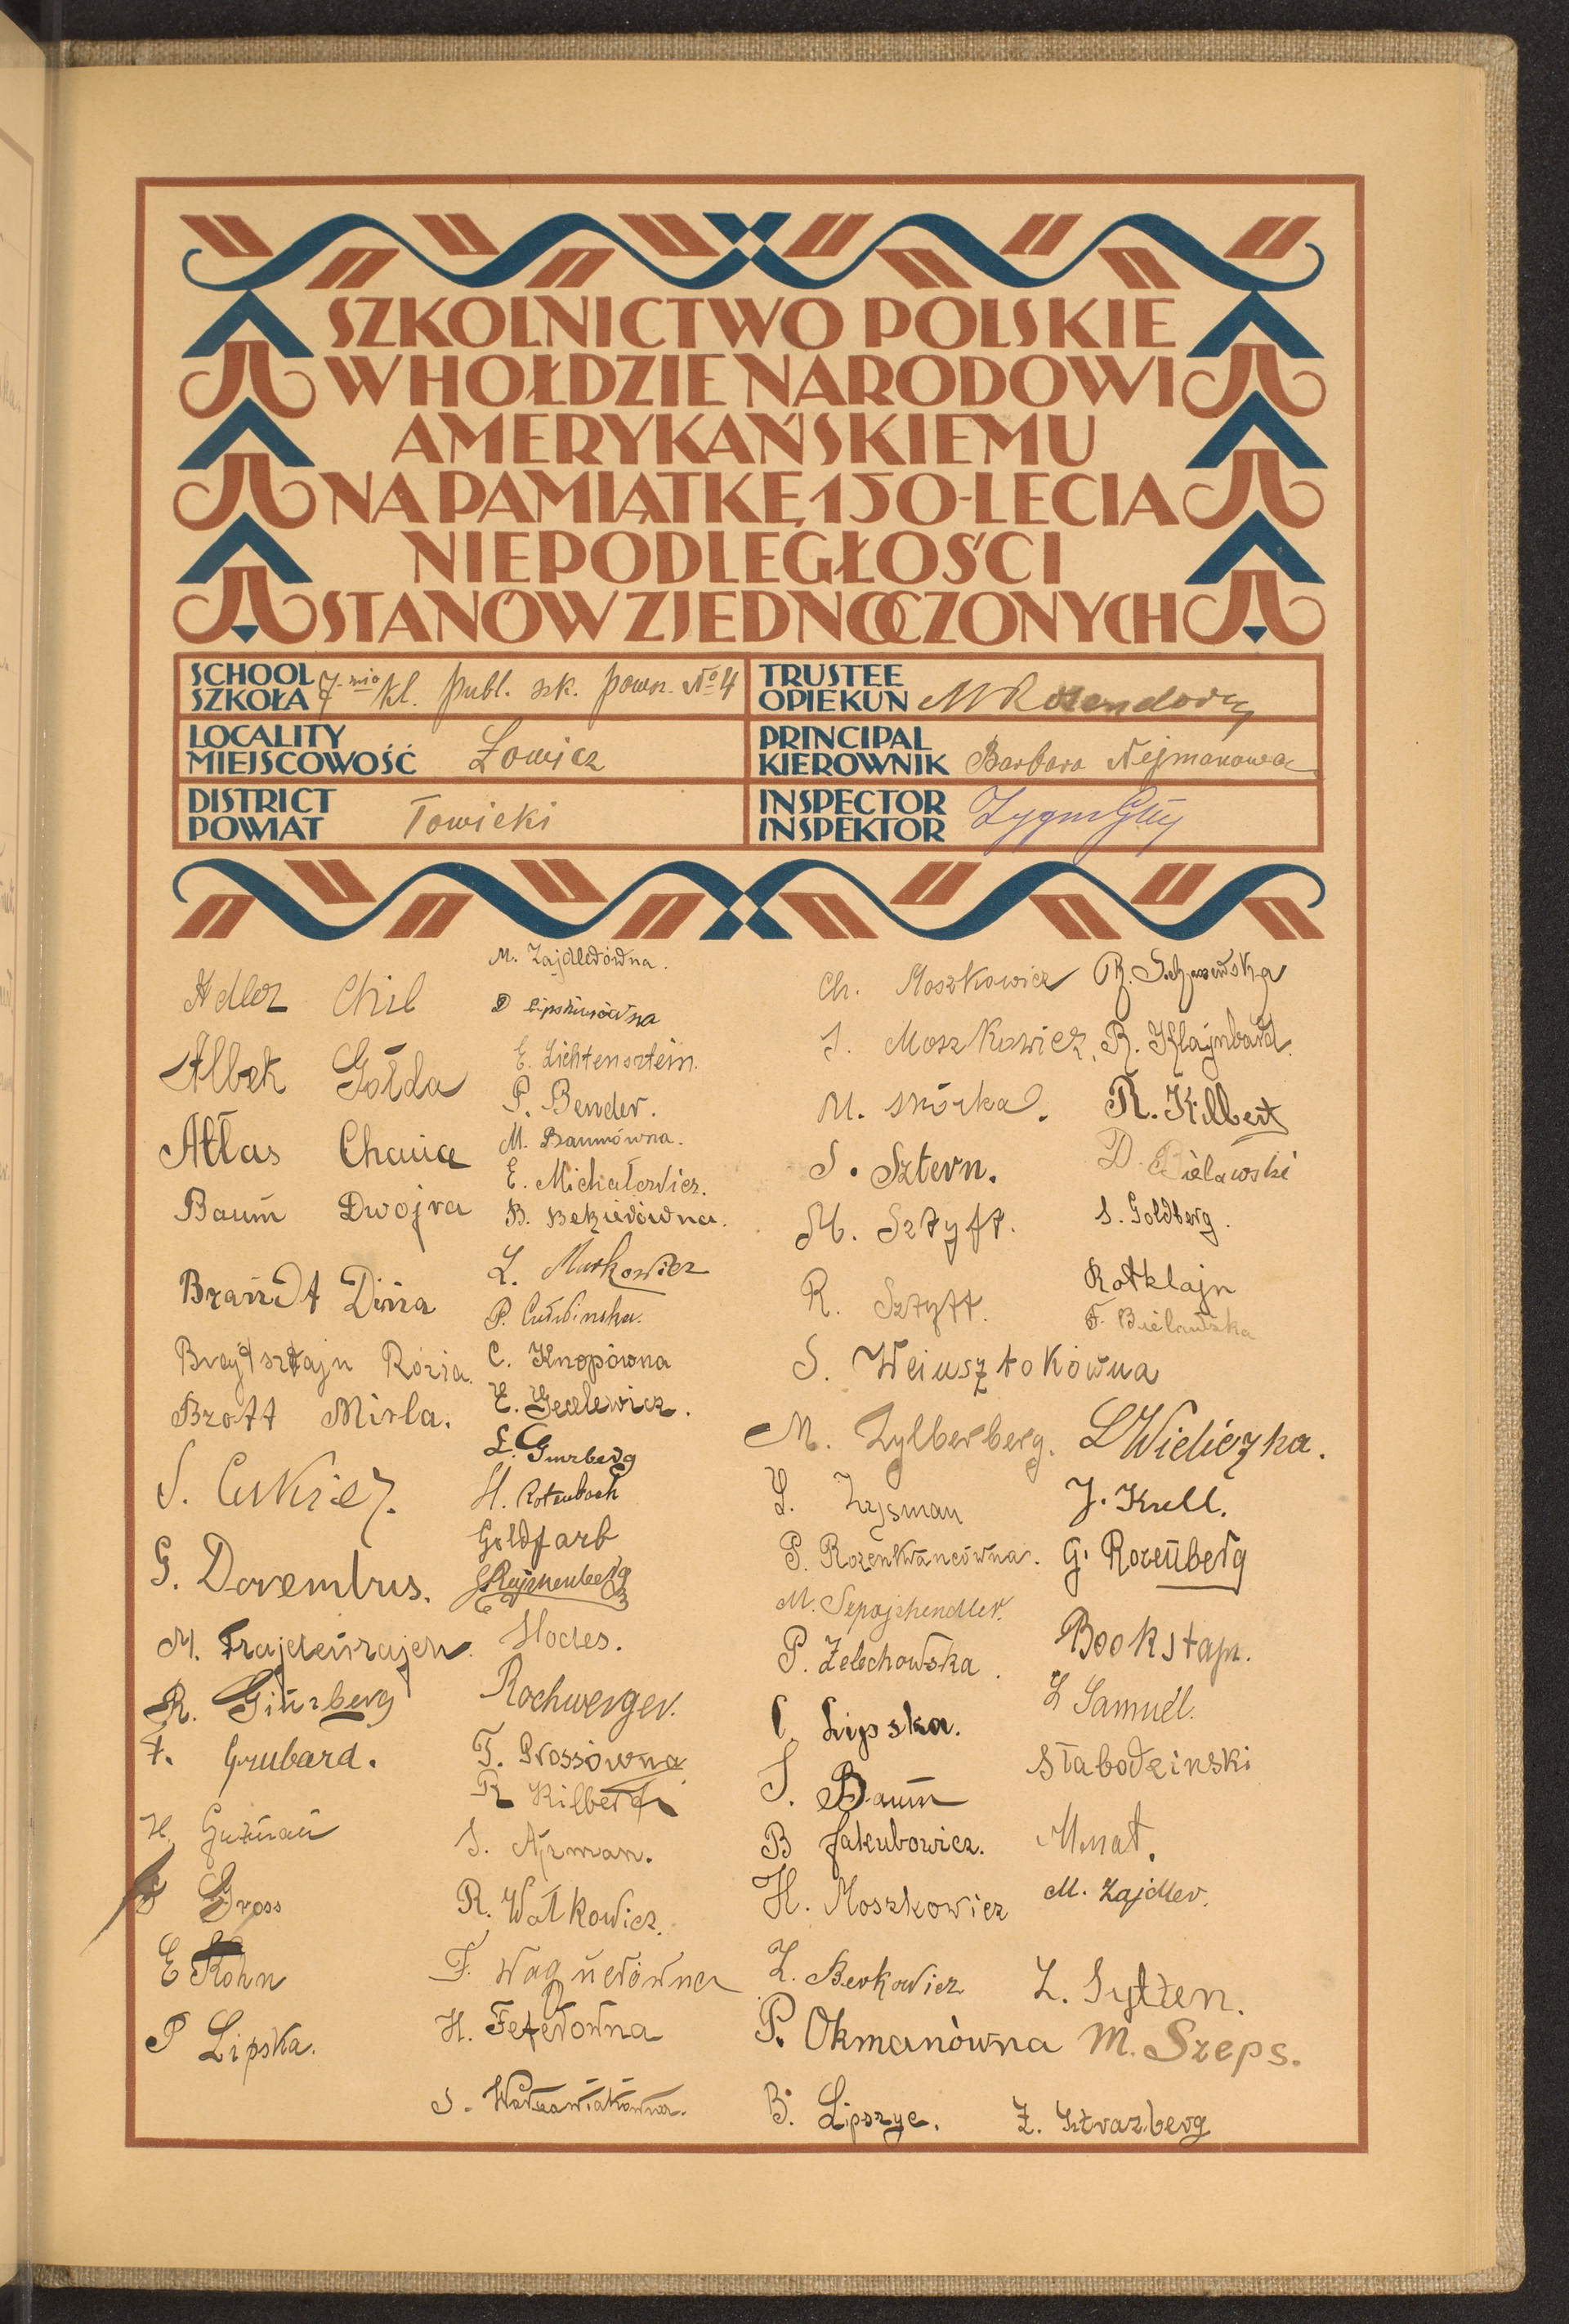 SZKOLNICTWO POLSKIE
W HOŁDZIE NARODOWI
AMERYKAŃSKIEMU
NA PAMIĄTKĘ 150-LECIA
NIEPODLEGŁOŚCI
STANÓW ZJEDNOCZONYCH
SCHOOL
SZKOŁA 7-mio kl. publ. szk. pow. № 4
LOCALITY
MIEJSCOWOŚĆ Łowicz
DISTRICT
POWIAT Łowicki
TRUSTEE
OPIEKUN
PRINCIPAL
KIEROWNIK Barbara Nejmanowa
INSPECTOR
INSPEKTOR
Adler Chil
Albek Gołda
Atlas Chaia
Baum Dwojra
Brandt Dina
Brajtsztajn Rózia.
Brott Mirla.
S. Cukier.
G. Dorembus.
M. Frajdenrajch.
R. Ginzberg
F. Grubard.
H. Gutman
Gross
E Kohn
P Lipska.
M. Zajdlerówna.
D Lipskierówna
E. Lichtensztein.
P. Bender.
M. Baumówna.
E. Michałowicz.
B. Bekierówna.
L. Markowicz
C. Knopówna
E. Gecelewicz.
L. Ginzberg
H. Rotenbach
Goldfarb
Hodes.
Rochwerger.
T. Prossówna
R Kilbert
S. Ajzman.
R. Wałkowicz.
F. Wagnerówna
H. Feferówna
S. Warszawiakówna.
Ch. Moszkowicz
I. Moszkowicz.
M. Skórka.
S. Sztern.
M. Sztyft.
R. Sztyft.
S. Weinsztokówna
M. Zylberberg.
L. Zysman
P. Rozenkrancówna.
M. Sepajzhendler.
P. Żelechowska.
C. Lipska.
S. Baum
B Jakubowicz.
H. Moszkowicz
Z. Berkowicz
P. Okmanówna
B. Lipszyc.
R. Klajnbard.
R. Kilbert
D. Bielawski
S. Goldberg.
Rotklajn
F. Bielawska
L Wieliczka.
J. Krell.
G. Rozenberg
Booksztajn.
L Samuel.
Słabodzinski
Monat.
M. Zajdler.
Z. Sytzen.
M. Szeps.
Z. Sztrazberg